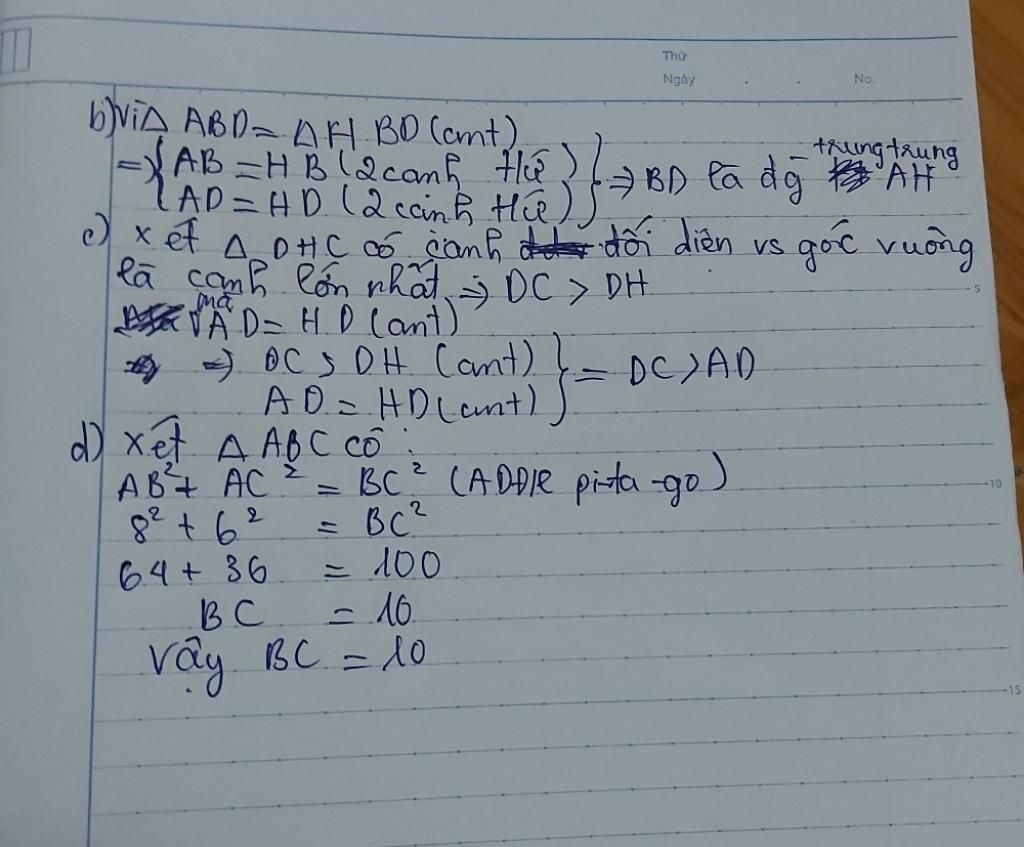 Thứ
Ngày . . No.
b) Vì Δ ABD = Δ H BD (cmt)
=> { AB = H B (2 cạnh t/ứ) } => BD là đg trung trung AH
AD = HD (2 cạnh t/ứ)
c) xét Δ DHC có cạnh đối diện vs góc vuông
là cạnh lớn nhất => DC > DH 5
mà AD = HD (cmt)
=> DC > DH (cmt) } = DC > AD
AD = HD (cmt)
d) xét Δ ABC có :
AB² + AC² = BC² (ADĐlí pi-ta-go) 10
8² + 6² = BC²
64 + 36 = 100
BC = 10
Vậy BC = 10
15